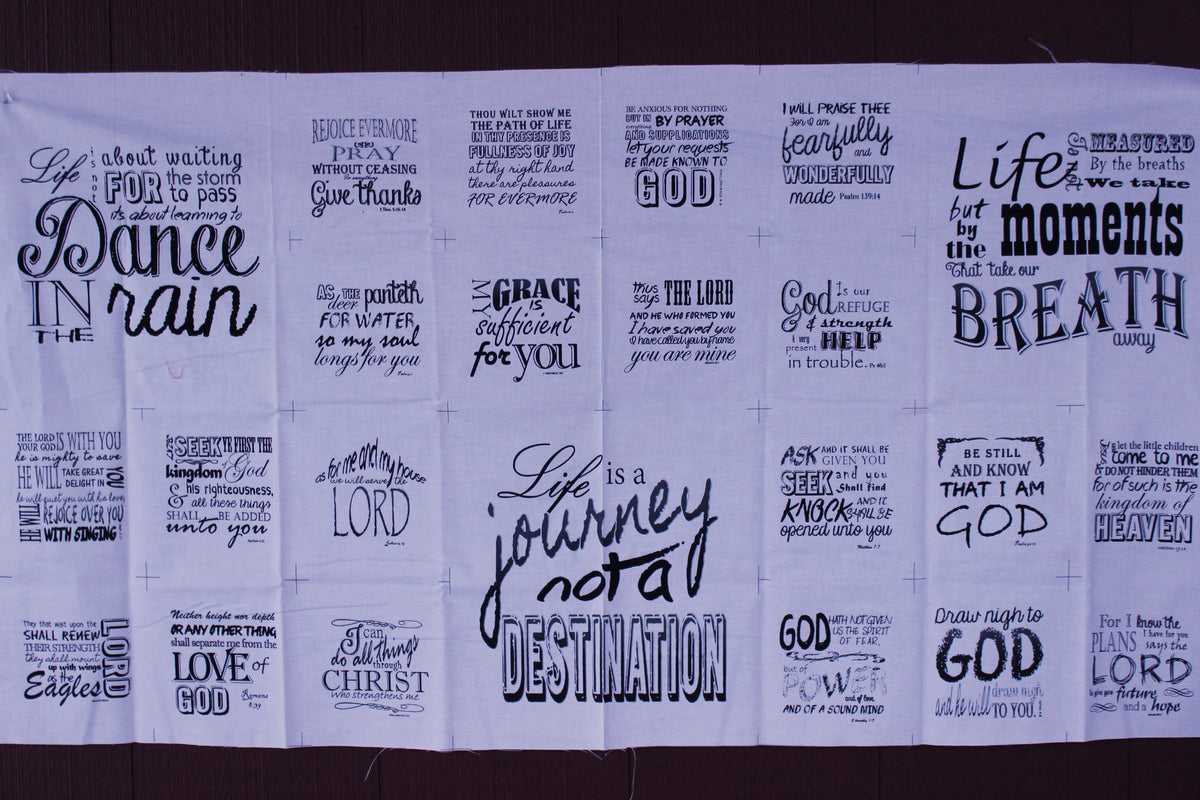 Life is not about waiting
FOR the storm
to pass
it's about learning to
Dance
IN rain
THE
REJOICE EVERMORE
PRAY
WITHOUT CEASING
In everything
Give thanks
1 Thes. 5:16-18
THOU WILT SHOW ME
THE PATH OF LIFE
IN THY PRESENCE IS
FULLNESS OF JOY
at thy right hand
there are pleasures
FOR EVERMORE
BE ANXIOUS FOR NOTHING
BUT IN everything BY PRAYER
AND SUPPLICATIONS
let your requests
BE MADE KNOWN TO
GOD
I WILL PRAISE THEE
For I am
fearfully
and
WONDERFULLY
made Psalm 139:14
Life is not MEASURED
By the breaths
We take
but
by
the moments
That take our
BREATH
away
AS THE panteth
deer
FOR WATER
so my soul
longs for you
MY GRACE
IS
sufficient
for YOU
thus
says THE LORD
AND HE WHO FORMED YOU
I have saved you
I have called you by name
you are mine
God Is our
REFUGE
& strength
A very
present HELP
in trouble. Ps 46:1
THE LORD
YOUR GOD IS WITH YOU
he is mighty to save
HE WILL TAKE GREAT
DELIGHT IN YOU
he will quiet you with his love
HE WILL REJOICE OVER YOU
WITH SINGING
SEEK YE FIRST THE
kingdom of God
& his righteousness,
& all these things
SHALL BE ADDED
unto you
as for me and my house
we will serve the
LORD
Life is a
journey
not a
DESTINATION
ASK AND IT SHALL BE
GIVEN YOU
SEEK and you
Shall find
KNOCK AND IT
SHALL BE
opened unto you
Matthew 7:7
BE STILL
AND KNOW
THAT I AM
GOD
let the little children
come to me
& DO NOT HINDER THEM
for of such is the
kingdom of
HEAVEN
They that wait upon the
LORD
SHALL RENEW
THEIR STRENGTH
they shall mount
up with wings
as the
Eagles
Neither height nor depth
OR ANY OTHER THING
shall separate me from the
LOVE of
GOD Romans
8:39
I can
do all things
through
CHRIST
Who strengthens me.
GOD HATH NOT GIVEN
US THE SPIRIT
OF FEAR,
but of
POWER
and of love,
AND OF A SOUND MIND
2 Timothy 1:7
Draw nigh to
GOD
and he will draw nigh
TO YOU.!
For I know the
PLANS I have for you
says the
LORD
to give you future
and a hope